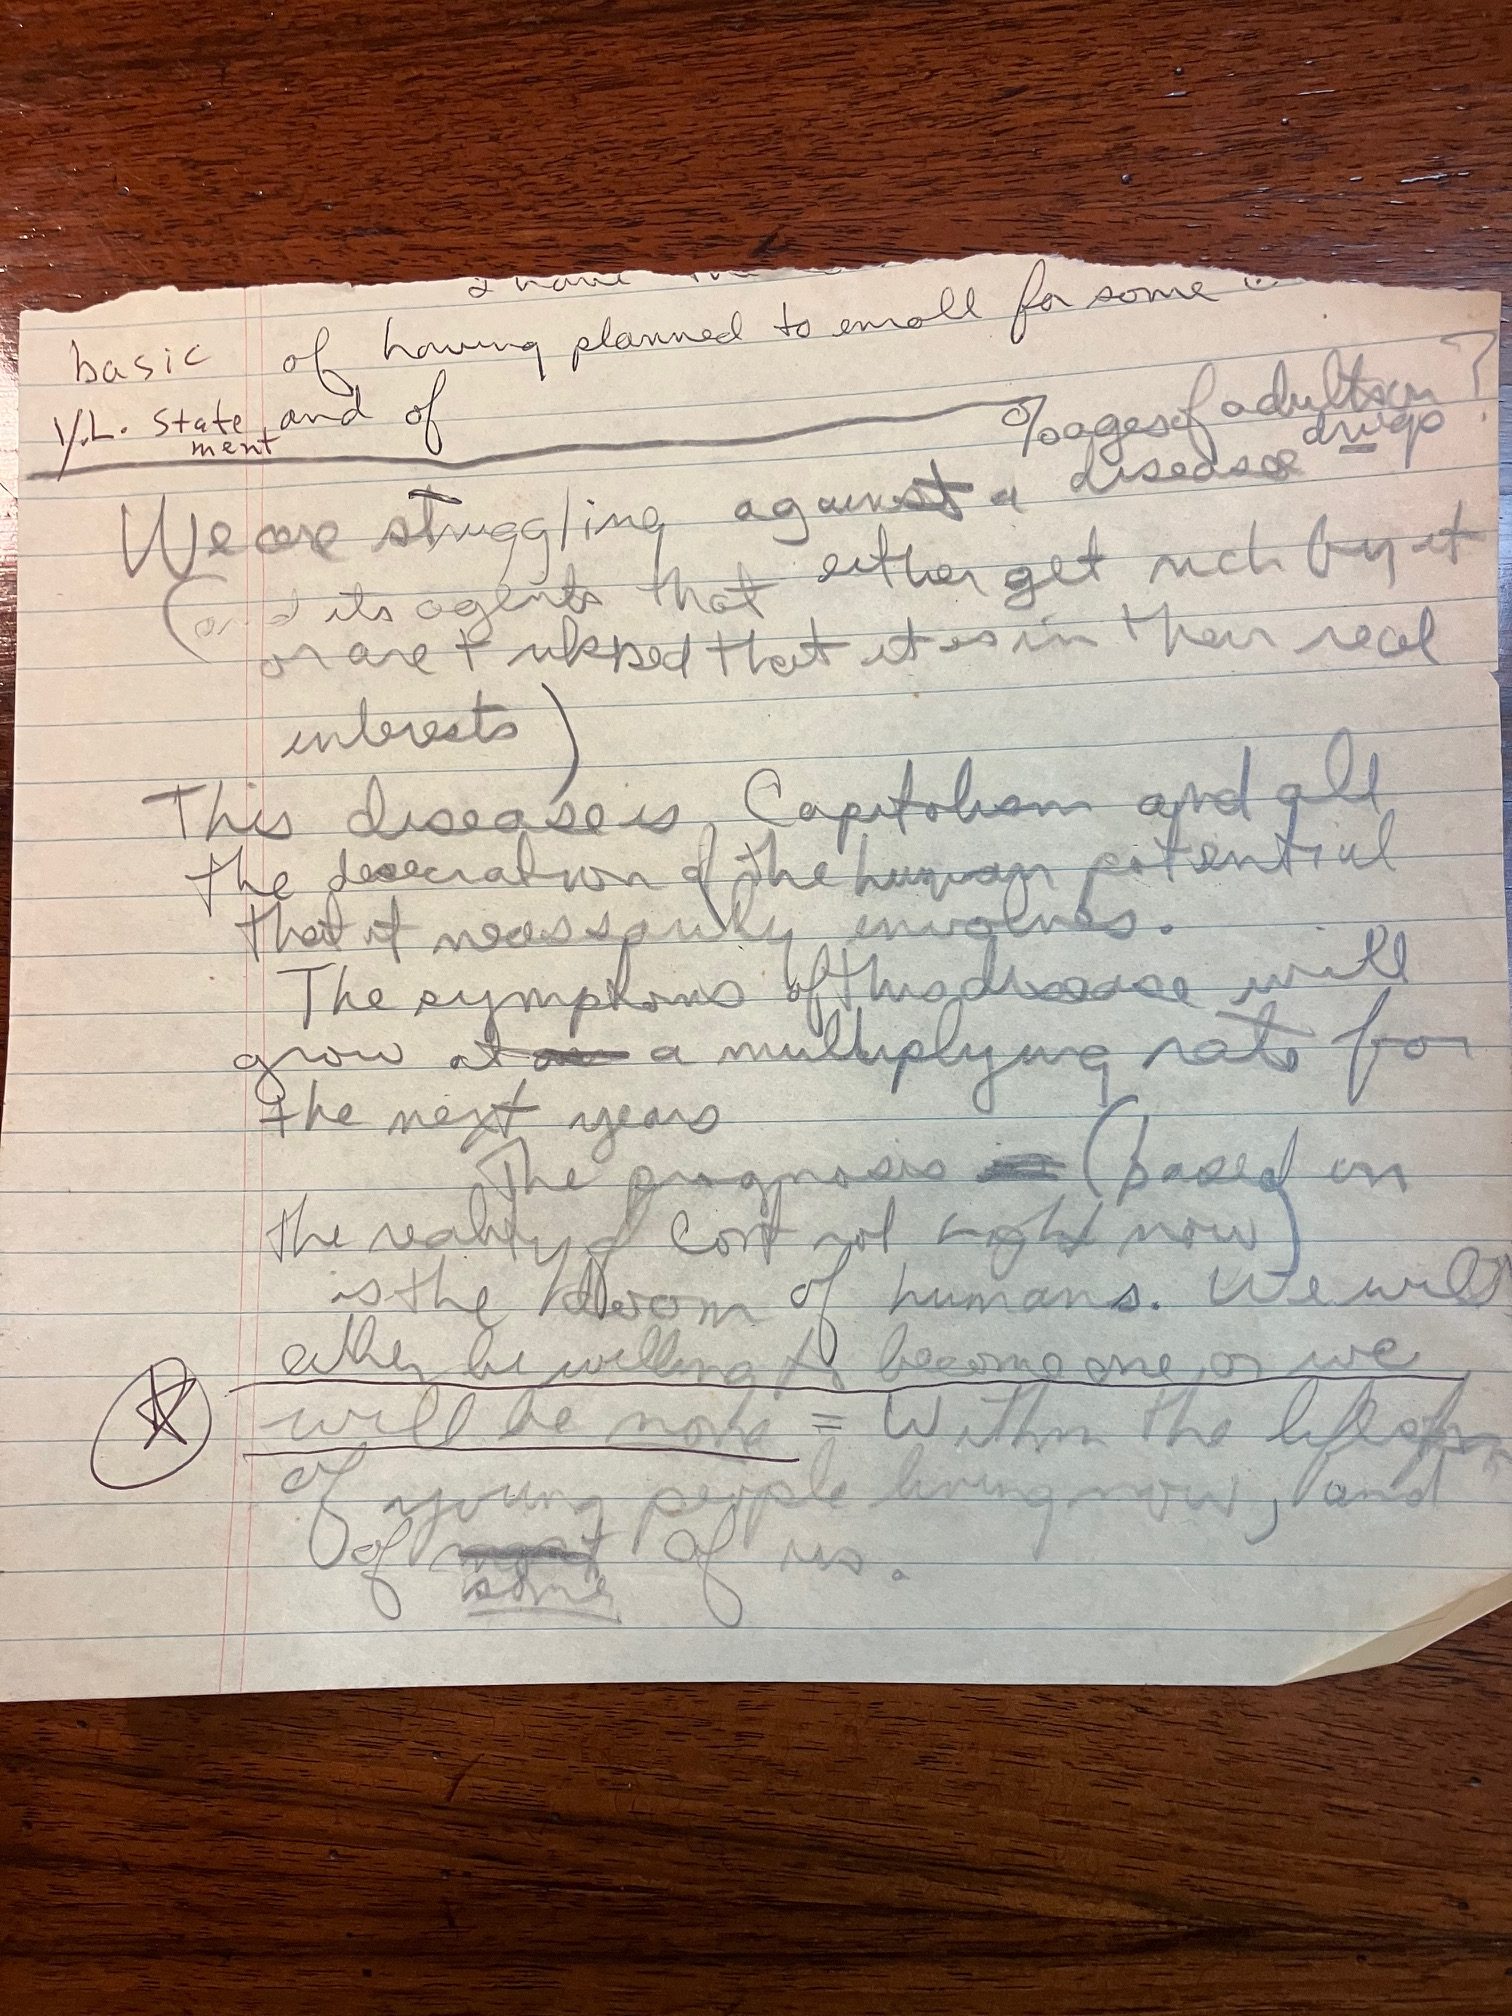 I have
basic of having planned to enroll for some
Y.L. State and of
ment
%ages of adults on ?
drugs
We are struggling against a disease
(and its agents that either get rich by it
or are tricked that it is in their real
interests)
This disease is Capitolism and all
the desecration of the human potential
that it necessarily involves.
The symptoms of this disease will
grow at a multiplying rate for
the next years
The prognosis (based on
the reality of control right now)
is the doom of humans. We will
either be willing to become one, or we
will be none = Within the life
of young people living now, and
of most of us.
some